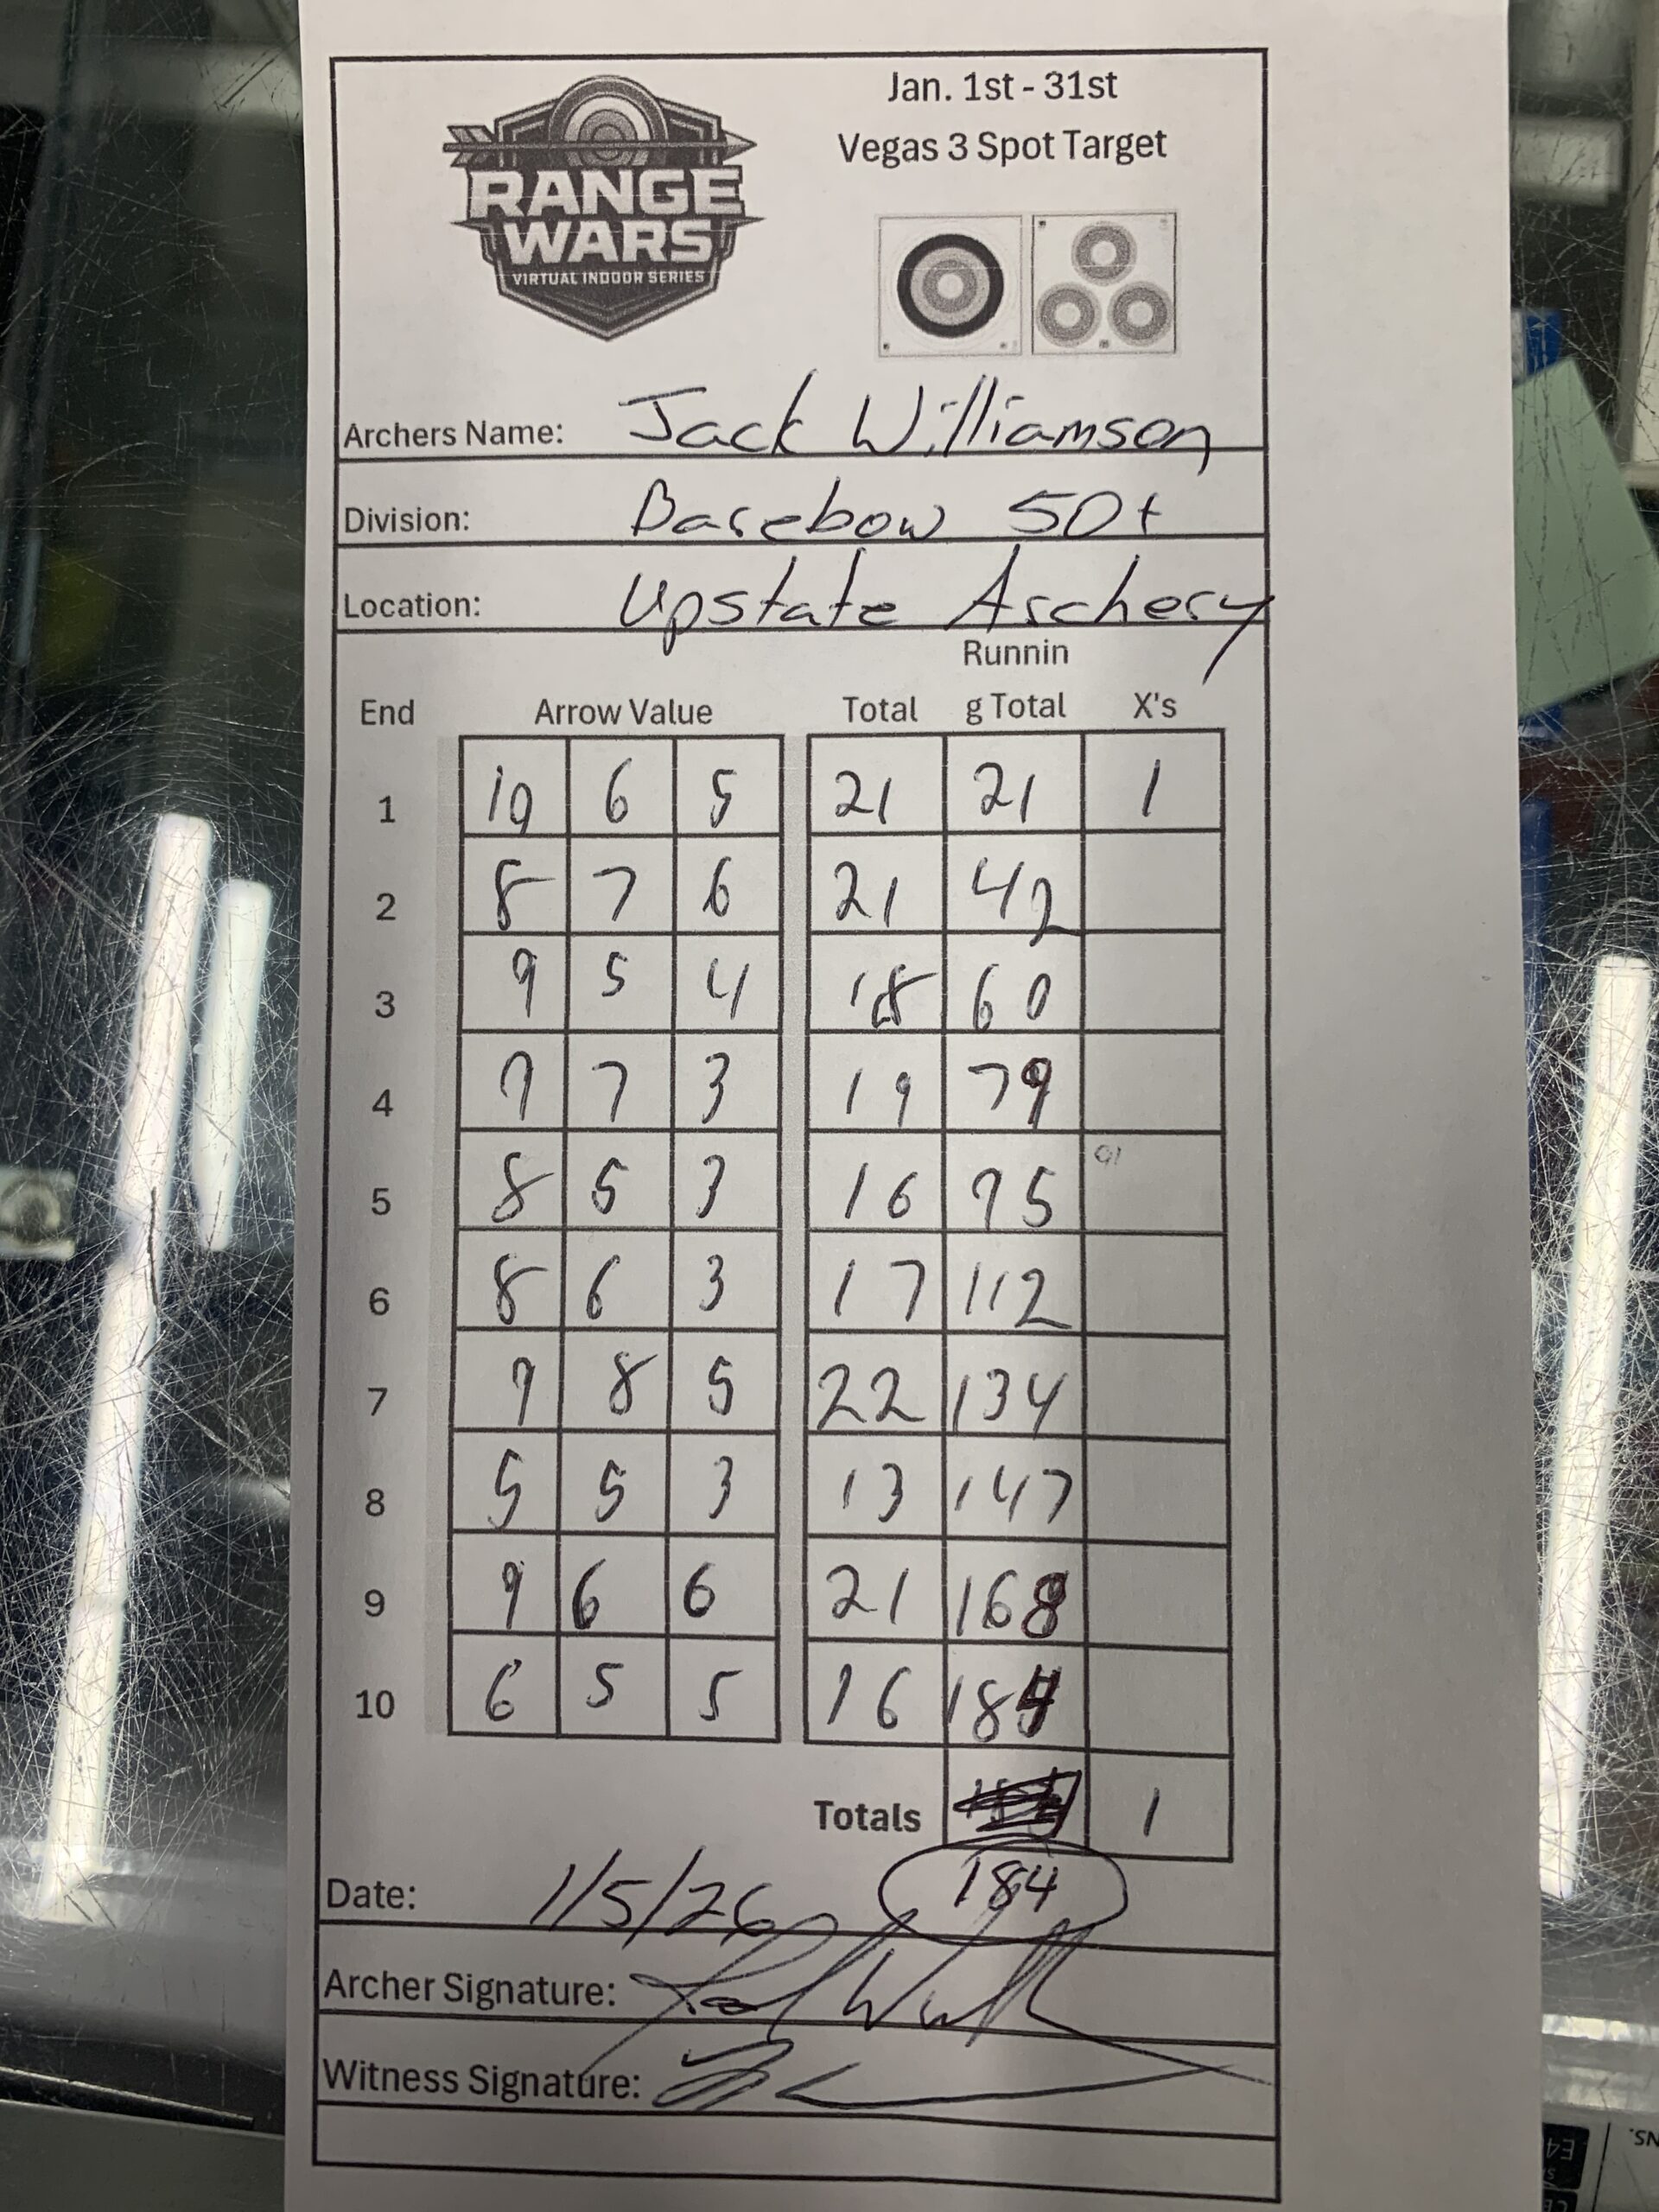 Jan. 1st - 31st
Vegas 3 Spot Target
RANGE
WARS
VIRTUAL INDOOR SERIES
Archers Name: Jack Williamson
Division: Barebow 50+
Location: Upstate Archery
Runnin
End Arrow Value Total g Total X's
1 10 6 5 21 21 1
2 8 7 6 21 42
3 9 5 4 18 60
4 9 7 3 19 79
91
5 8 5 3 16 95
6 8 6 3 17 112
7 9 8 5 22 134
8 5 5 3 13 147
9 9 6 6 21 168
10 6 5 5 16 184
Totals 1
184
Date: 1/5/26
Archer Signature:
Witness Signature: